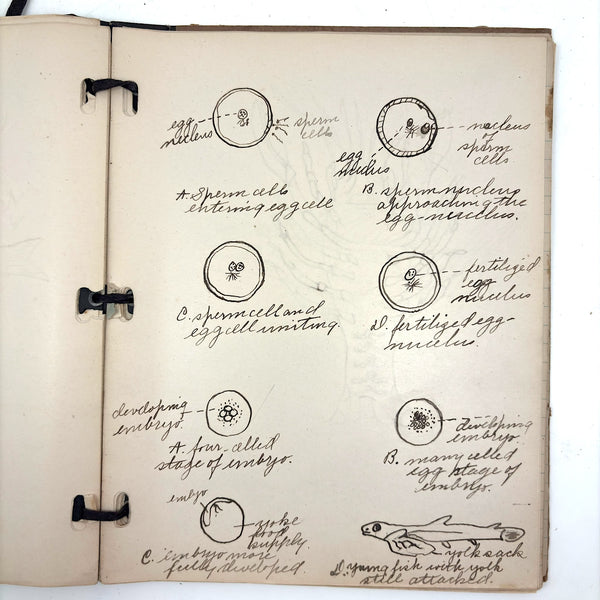 egg
nucleus
sperm
cells
A. Sperm cells
entering egg cell
egg
nucleus
nucleus
of
sperm
cells
B. sperm nucleus
approaching the
egg-nucleus.
C. sperm cell and
egg cell uniting.
fertilized
egg
nucleus
D. fertilized egg-
nucleus.
developing
embryo.
A. four-celled
stage of embryo.
developing
embryo.
B. many celled
egg stage of
embryo.
embryo
yoke
food
supply.
C. embryo more
fully developed.
yolk sack
D. young fish with yolk
still attached.